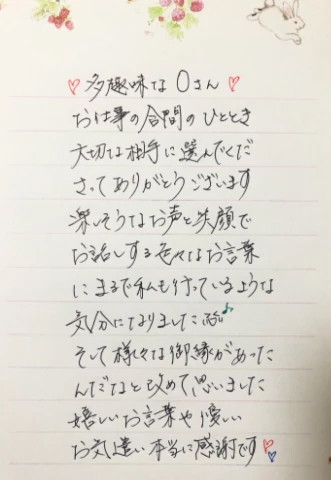 ♡多趣味な Oさん♡
お仕事の合間のひととき
大切な相手に選んでくだ
さってありがとうございます
楽しそうなお声と笑顔で
お話しする色々なお言葉
にまるで私も行っているような
気分になりました♪
そして様々な御縁があった
んだなと改めて思いました
嬉しいお言葉や優しい
お気遣い本当に感謝です♡♡